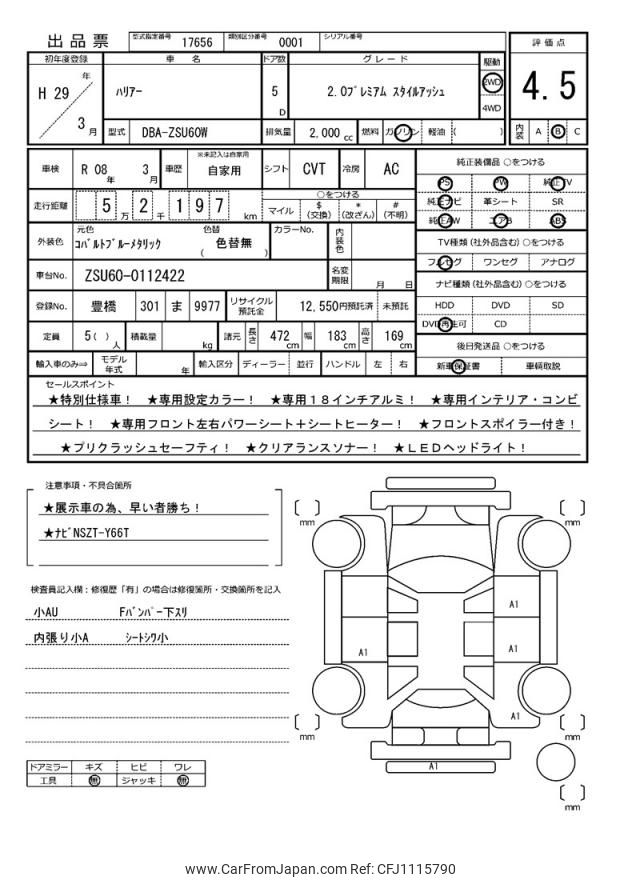 出品票 型式指定番号 17656 類別区分番号 0001 シリアル番号
初年度登録 車名 ドア数 グレード 駆動 評価点
H 29 年 3 月 ハリアー 5 D 2.0プレミアム スタイルアッシュ 2WD 4WD 4.5
型式 DBA-ZSU60W 排気量 2,000 cc 燃料 ガソリン 軽油 ( ) 内装 A B C
車検 R 08 年 3 月 車歴 ※未記入は自家用 自家用 シフト CVT 冷房 AC
純正装備品 ○をつける
PS PW 純正TV
純正ナビ 革シート SR
純正AW エアB ABS
走行距離 5 万 2 千 1 9 7 km
○をつける
マイル $ (交換) * (改ざん) # (不明)
外装色 元色 コバルトブルーメタリック 色替 ( 色替無 ) カラーNo. 内装色
TV種類 (社外品含む) ○をつける
フルセグ ワンセグ アナログ
車台No. ZSU60-0112422 名変期限 月 日
ナビ種類 (社外品含む) ○をつける
HDD DVD SD
DVD再生可 CD
登録No. 豊橋 301 ま 9977 リサイクル預託金 12,550円預託済 未預託
定員 5 ( ) 人 積載量 kg 諸元 長さ 472 cm 幅 183 cm 高さ 169 cm
後日発送品 ○をつける
新車保証書 車輌取説
輸入車のみ⇒ モデル年式 年 輸入区分 ディーラー 並行 ハンドル 左 右
セールスポイント
★特別仕様車！ ★専用設定カラー！ ★専用１８インチアルミ！ ★専用インテリア・コンビ
シート！ ★専用フロント左右パワーシート＋シートヒーター！ ★フロントスポイラー付き！
★プリクラッシュセーフティ！ ★クリアランスソナー！ ★ＬＥＤヘッドライト！
注意事項・不具合箇所
★展示車の為、早い者勝ち！
★ナビNSZT-Y66T
検査員記入欄：修復歴「有」の場合は修復箇所・交換箇所を記入
小AU Fバンパー下スリ
内張り小A シートシワ小
ドアミラー キズ ヒビ ワレ
工具 無 ジャッキ 無
mm
mm
A1
A1
A1
A1
mm
mm
A1
mm
www.CarFromJapan.com Ref: CFJ1115790